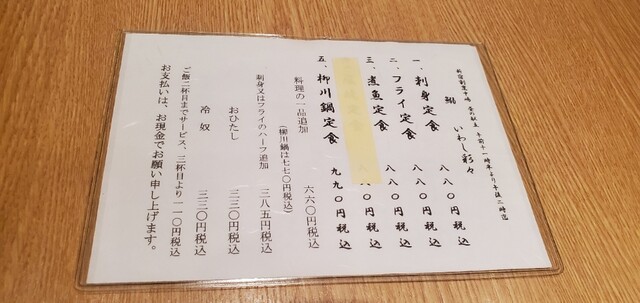 新宿割烹中嶋 昼の献立 午前十一時半より午後二時迄
鰯 いわし彩々
一、刺身定食 八八〇円税込
二、フライ定食 八八〇円税込
三、煮魚定食 八八〇円税込
五、柳川鍋定食 九九〇円税込
料理の一品追加 六六〇円税込
(柳川鍋は七七〇円税込)
刺身又はフライのハーフ追加 三八五円税込
おひたし 二二〇円税込
冷奴 二二〇円税込
ご飯二杯目までサービス、三杯目より 一一〇円税込
お支払いは、お現金でお願い申し上げます。